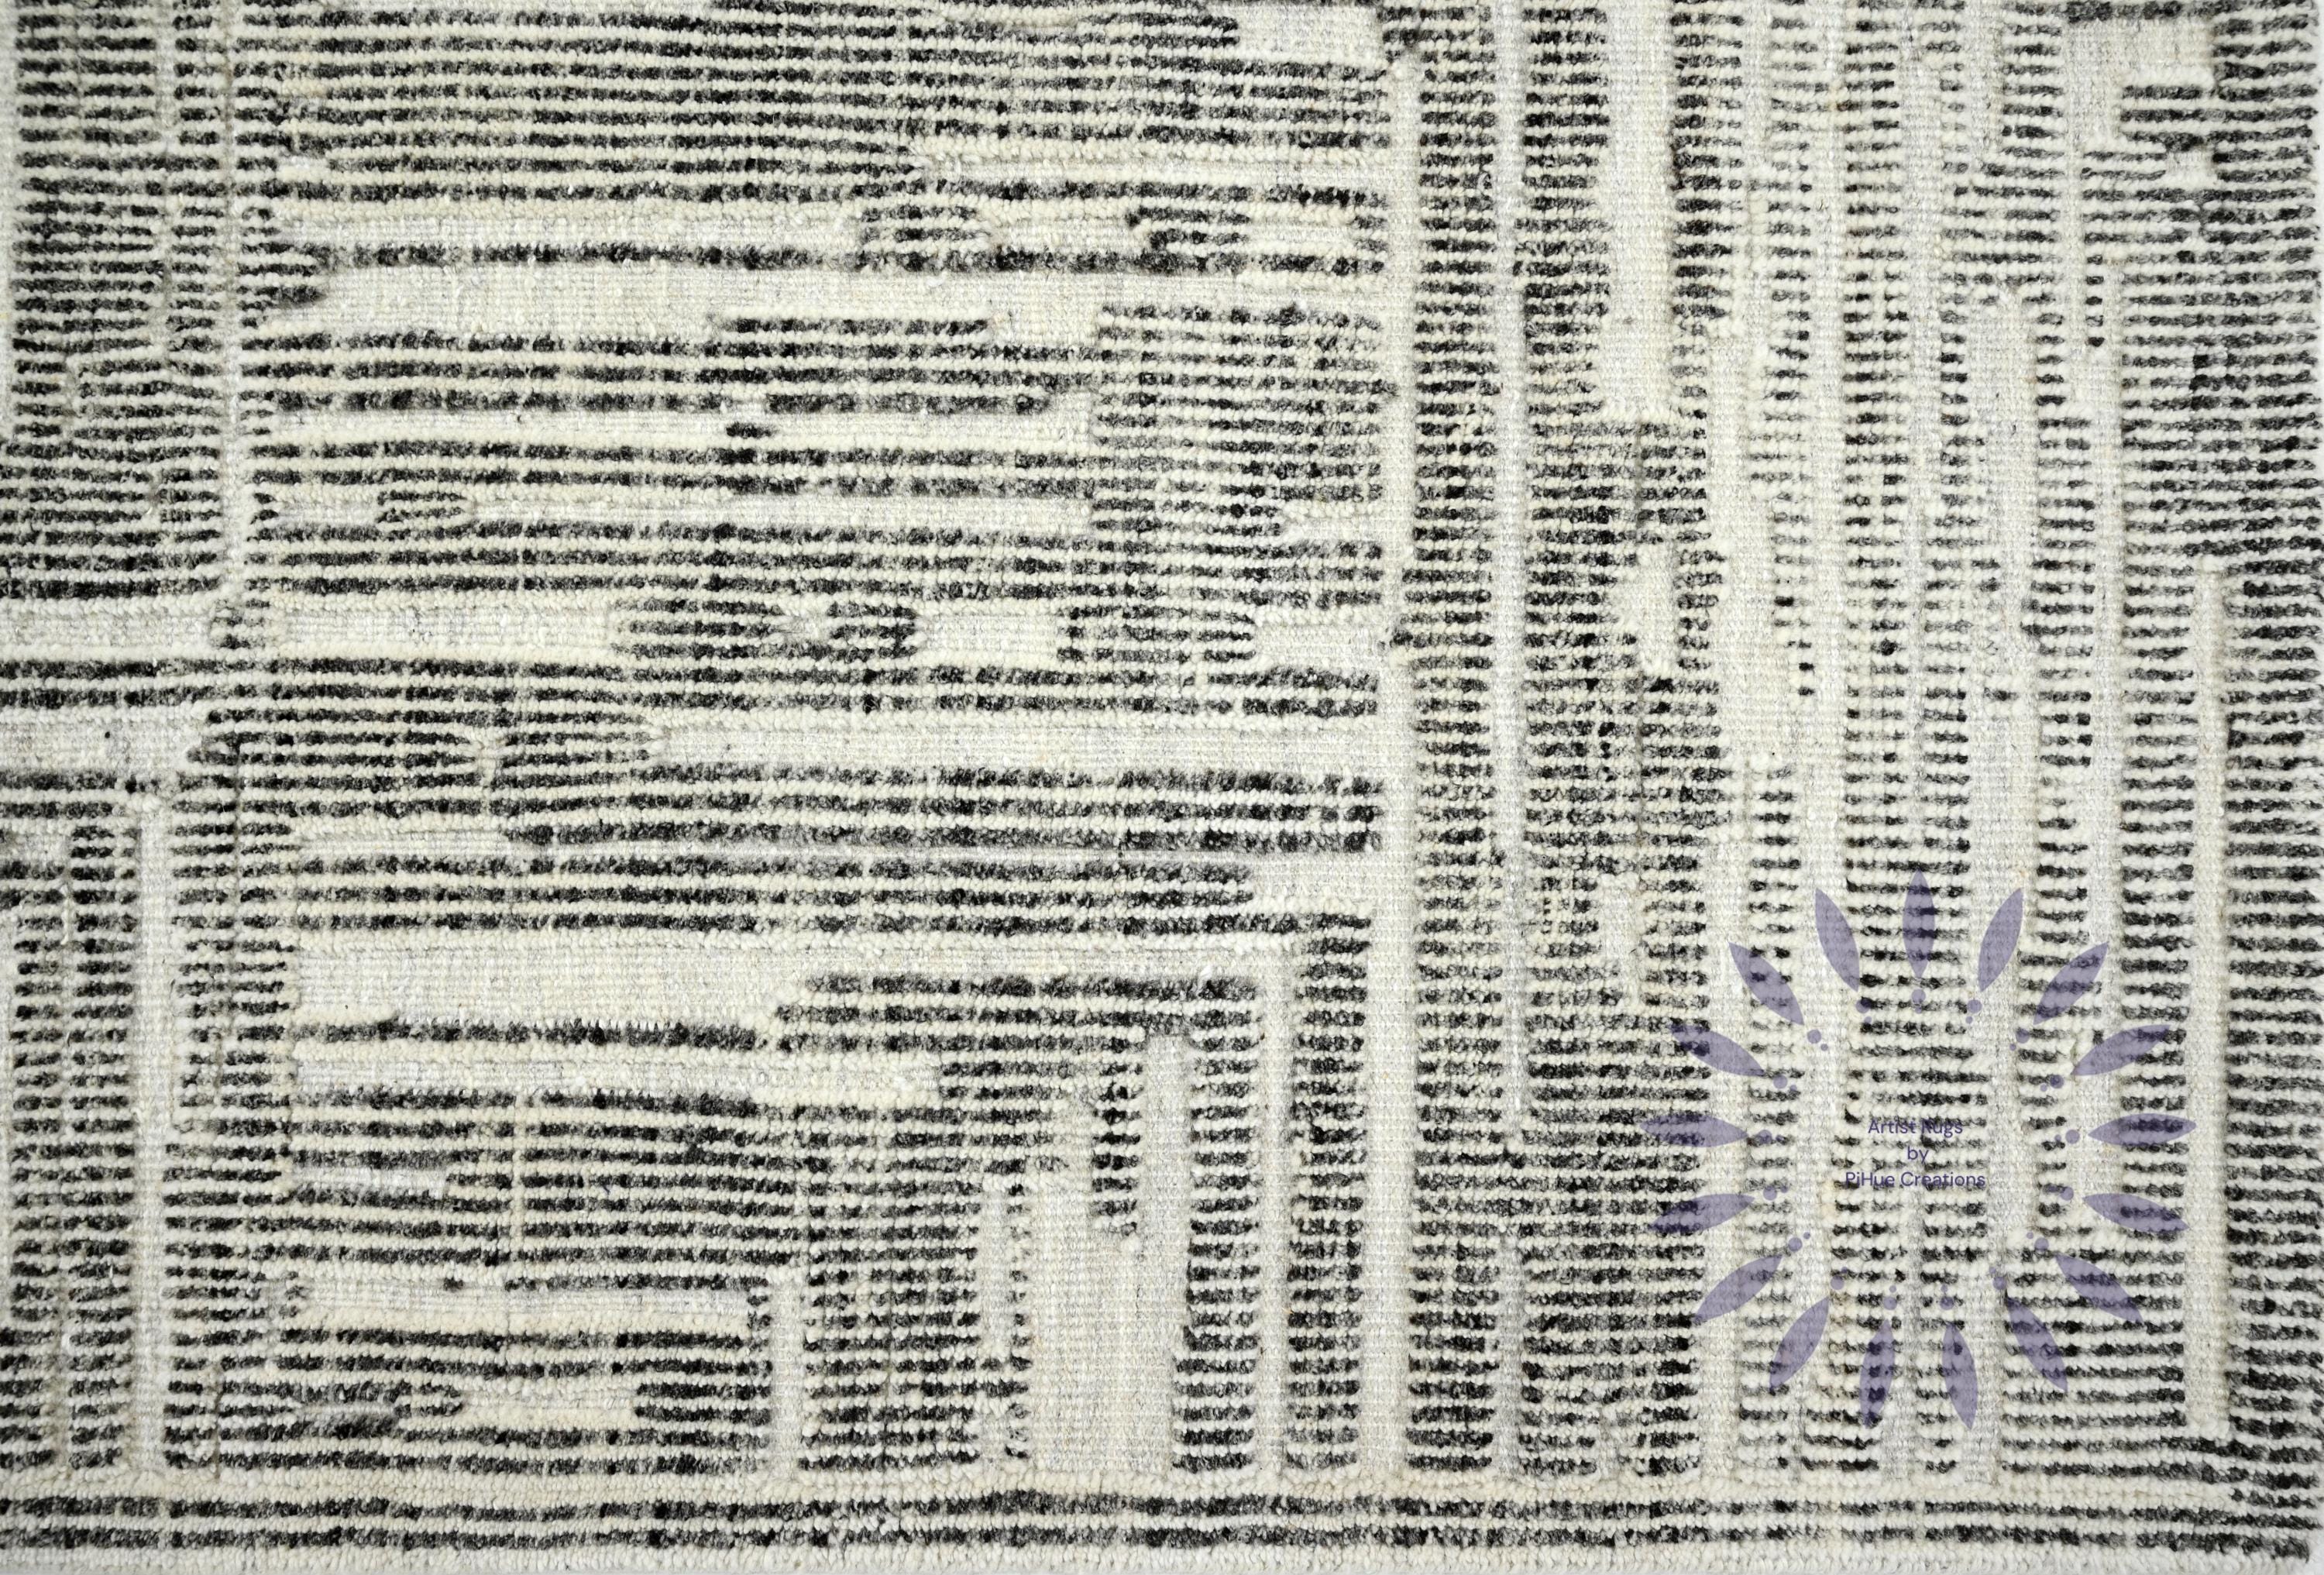 Artist Rugs
by
PiHue Creations